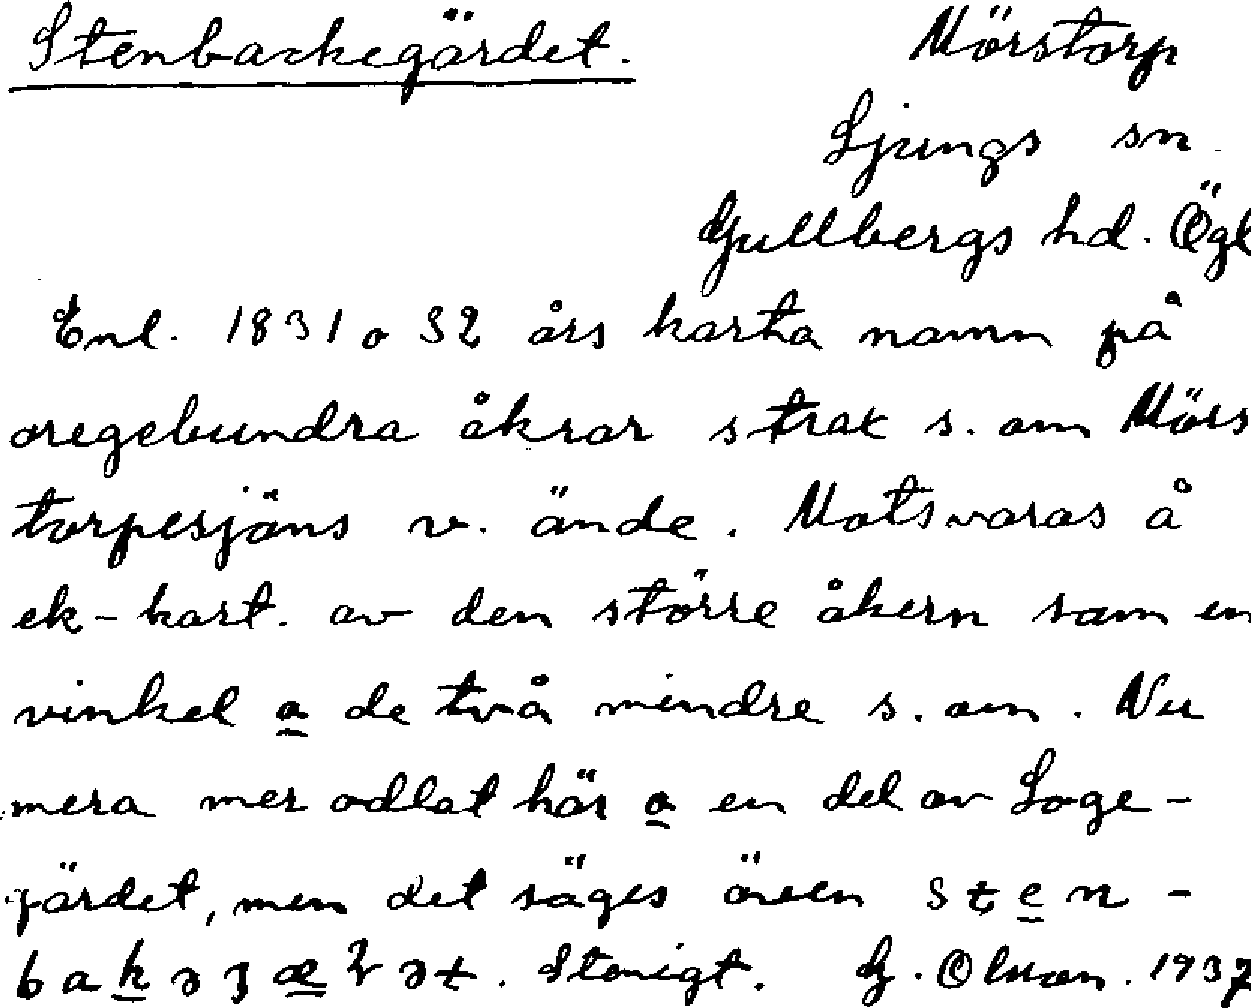 Stenbackegärdet. Mörstorp
Ljungs sn.
Gullbergs hd. Ögl
Enl. 1831 o 32 års karta namn på
oregebundra åkrar strax s. om Mörs
torpesjöns v. ände. Motsvaras å
ek-kart. av den större åkern som en
vinkel o de två mindre s. om. Nu
mera mer odlat här o en del av Loge-
gärdet, men det säges även sten-
Stenigt. G. Olsson. 1937